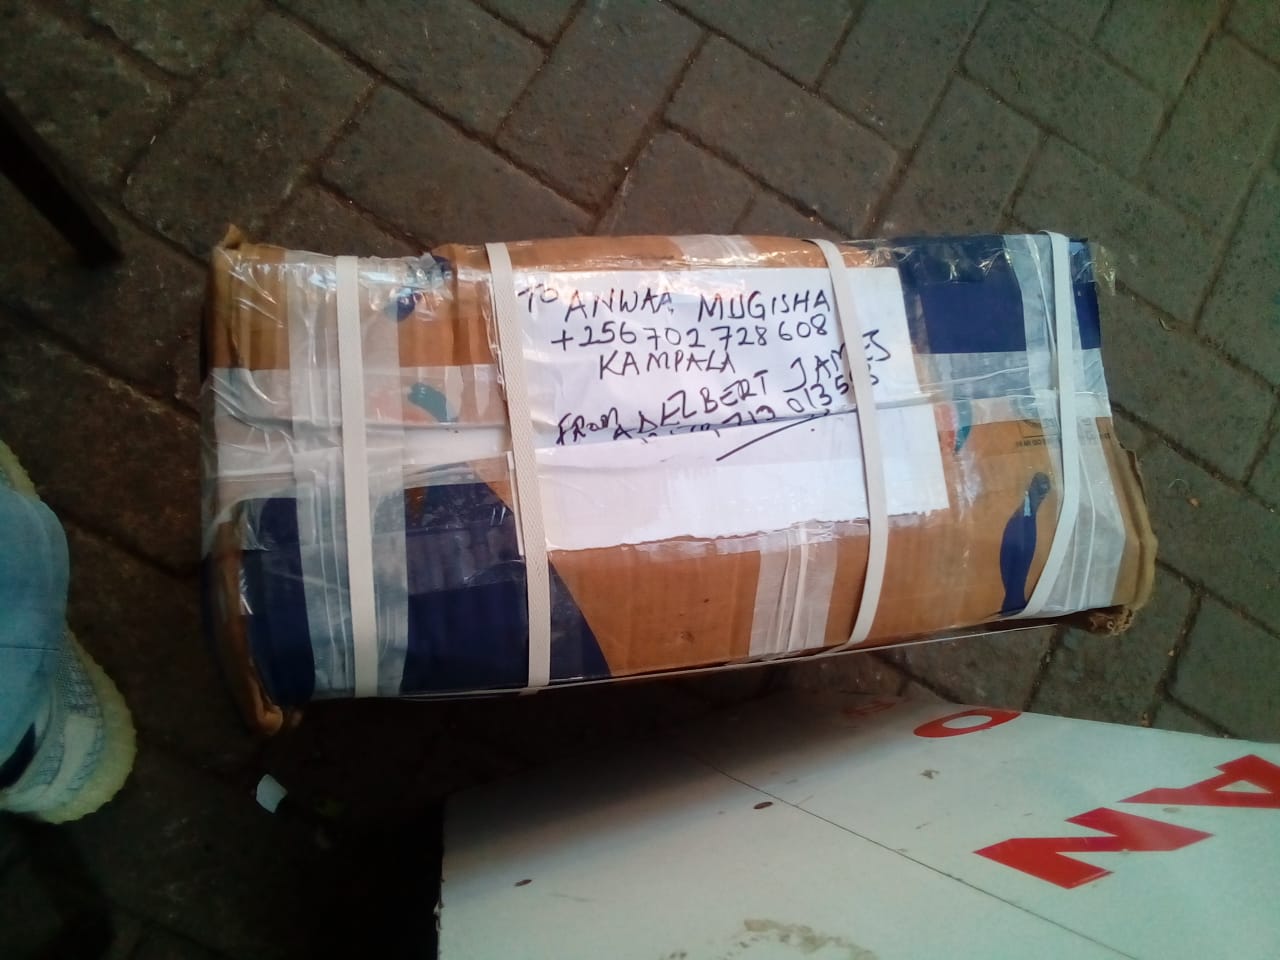 TO ANWAA MUGISHA
+256 702 728 608
KAMPALA
FROM ADELBERT JAMES
O
AN